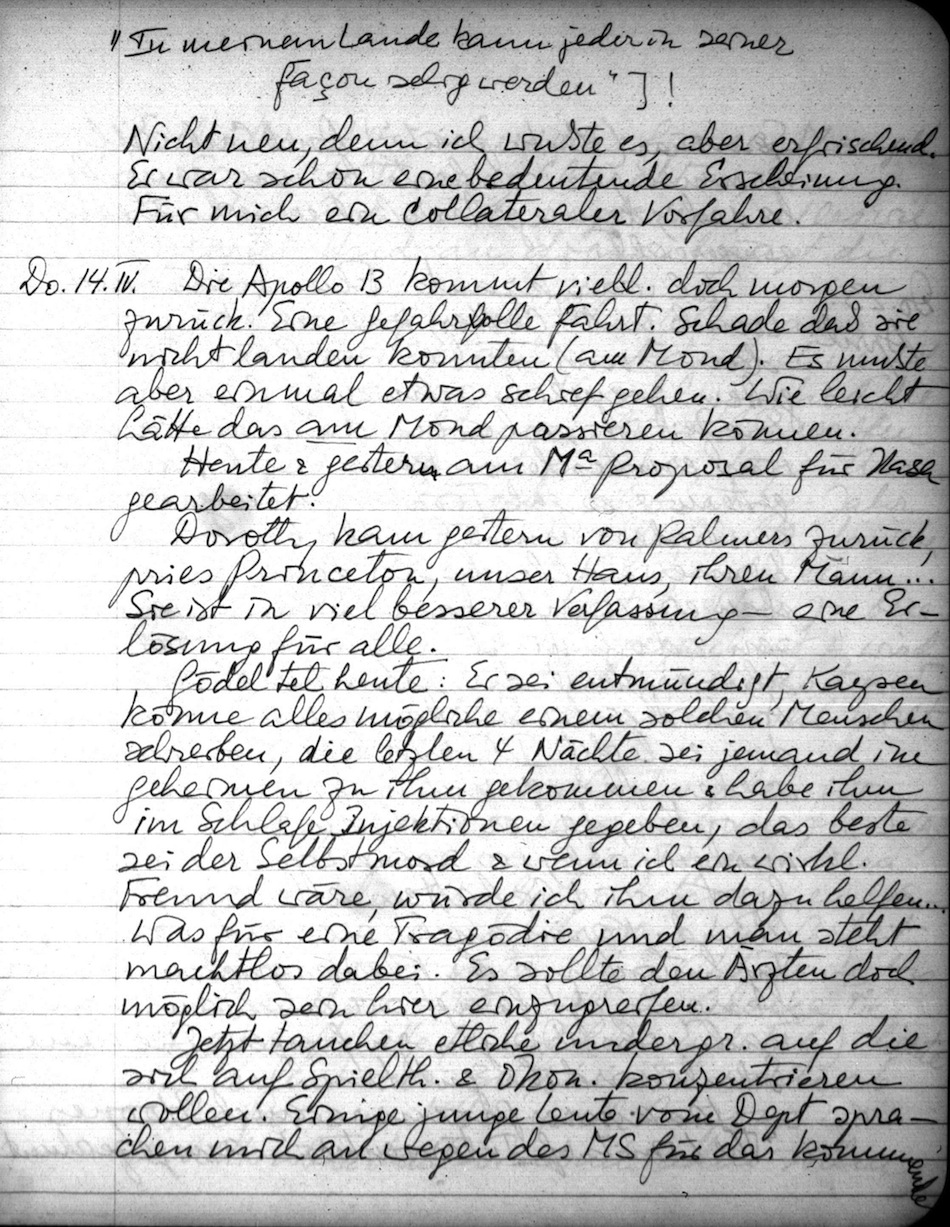 "In meinem Lande kann jeder in seiner
façon selig werden"]!
Nicht neu, denn ich wußte es, aber erfrischend.
Er war schon eine bedeutende Erscheinung.
Für mich ein Collateraler Vorfahre.
Do. 14.IV. Die Apollo 13 kommt viell. doch morgen
zurück. Eine gefahrfolle Fahrt. Schade daß sie
nicht landen konnten (am Mond). Es mußte
aber einmal etwas schief gehen. Wie leicht
hätte das am Mond passieren können.
Heute & gestern am Mᵃ Proposal für Nasa
gearbeitet.
Dorothy kam gestern von Palmers zurück,
pries Princeton, unser Haus, ihren Mann...
Sie ist in viel besserer Verfassung – eine Er-
lösung für alle.
Gödel tel heute: Er sei entmündigt, Kaysen
könne alles mögliche einem solchen Menschen
schreiben, die letzten 4 Nächte sei jemand im
geheimen zu ihm gekommen & habe ihm
im Schlafe Injektionen gegeben, das beste
sei der Selbstmord & wenn ich ein wirkl.
Freund wäre, würde ich ihm dazu helfen...
Was für eine Tragödie und man steht
machtlos dabei. Es sollte den Ärzten doch
möglich sein hier einzugreifen.
Jetzt tauchen etliche undergr. auf die
sich auf Spielth. & Ökon. konzentrieren
wollen. Einige junge Leute vom Dept spra-
chen mich an wegen des MS für das kommende